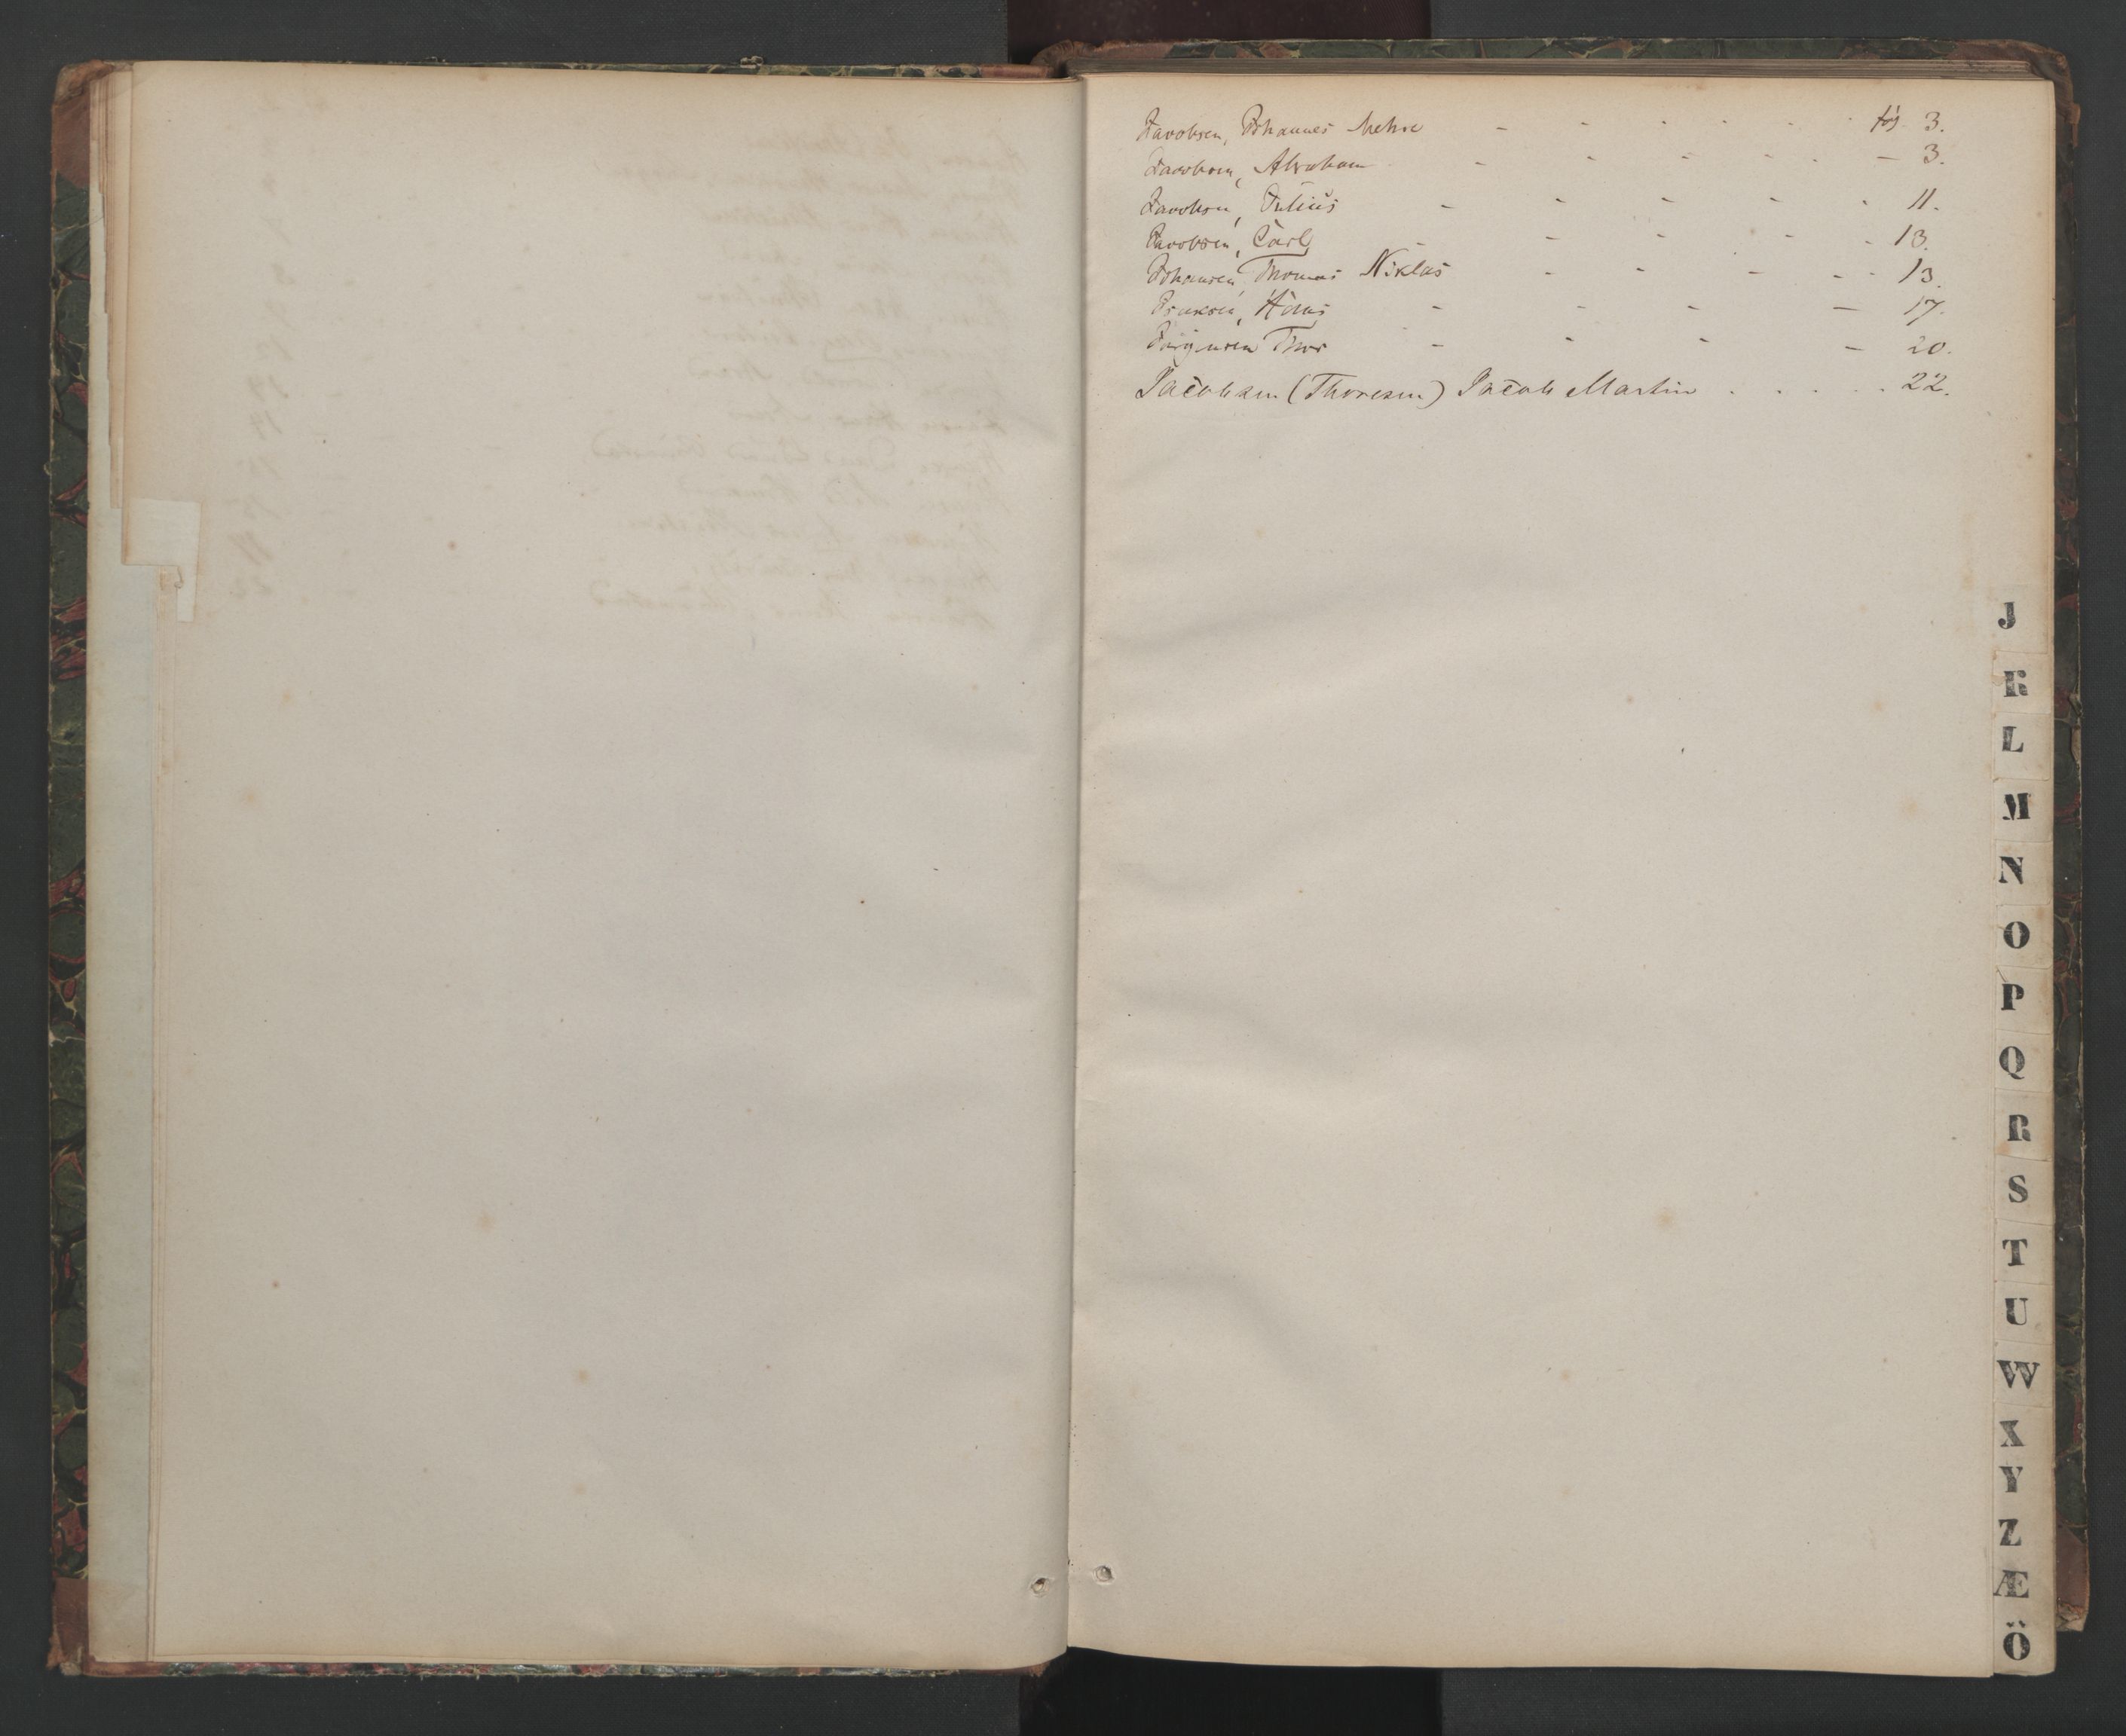 Jacobsen, Johannes - - - - - - fog. 3.
Jacobsen, Abraham - - - - - - 3.
Jacobsen, Julius - - - - - 11.
Jacobsen, Carl - - - - - 13.
Johansen, Thomas Niklas - - - - - 13.
Isaksen, Hans - - - - 17.
Jörgensen Thor - - - - 20.
Jacobsen (Thoresen) Jacob Martin . . . . . 22.
J
K
L
M
N
O
P
Q
R
S
T
U
W
X
Y
Z
Æ
Ö